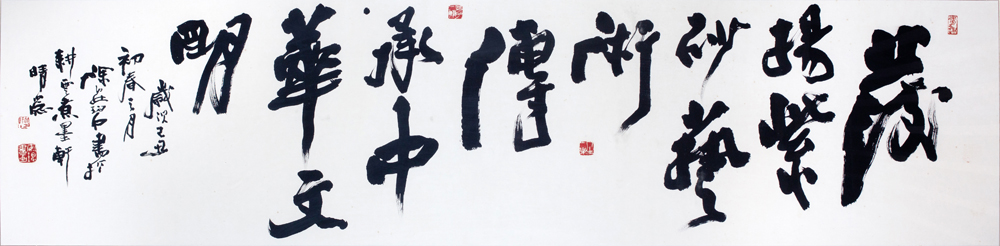 發
揚紫
砂藝
術
傳
承中
華文
明
歲次己丑
初春之月
書於
耕雲煮墨軒
晴窓